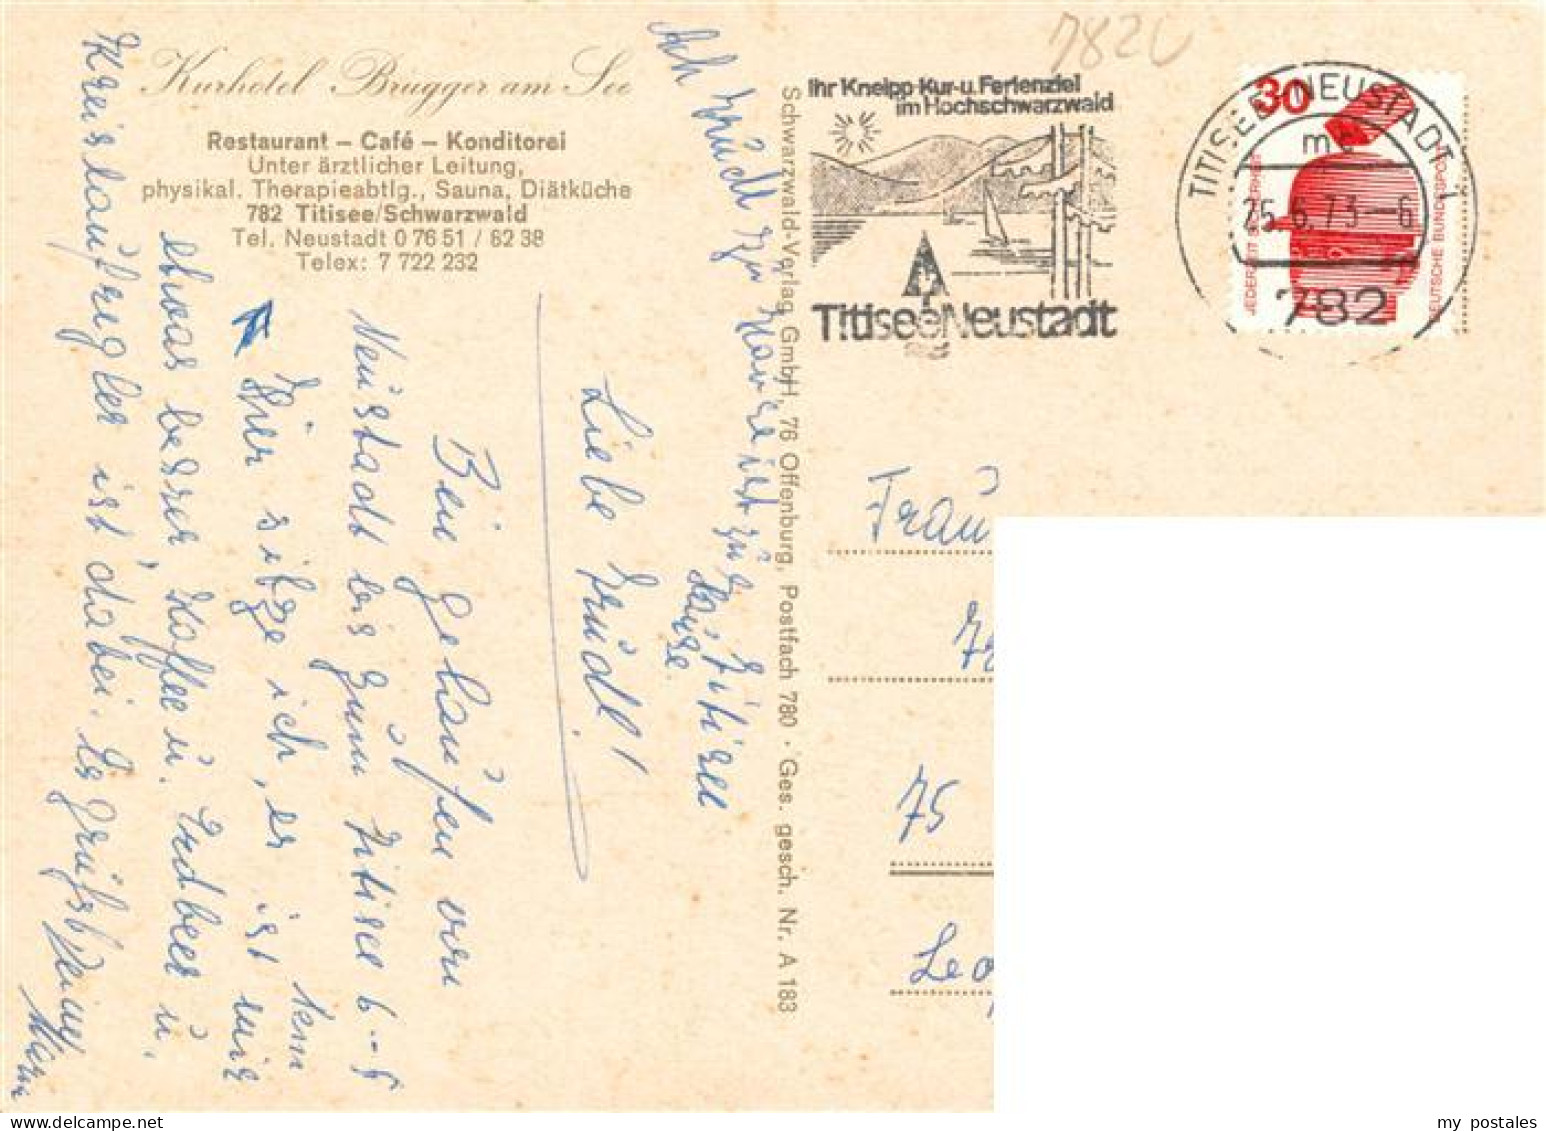 Kurhotel Brugger am See
Restaurant – Café – Konditorei
Unter ärztlicher Leitung,
physikal. Therapieabtlg., Sauna, Diätküche
782 Titisee/Schwarzwald
Tel. Neustadt 0 76 51 / 82 38
Telex: 7 722 232
Liebe Trudl!
Bin gelaufen von
Neustadt bis zum Titisee 6
km
Hier sitze ich, es ist mir
etwas besser, Kaffee u. Erdbeer u.
Kreislaufregler ist dabei. Es grüßt Deine
Schwarzwald-Verlag GmbH, 76 Offenburg, Postfach 780 · Ges. gesch. Nr. A 183
7820
Ihr Kneipp-Kur- u. Ferienziel
im Hochschwarzwald
Titisee-Neustadt
TITISEE-NEUSTADT 1
25.6.73–6
782
30
JEDERZEIT SICHERHEIT
DEUTSCHE BUNDESPOST
Frau
75
Leo
my postales